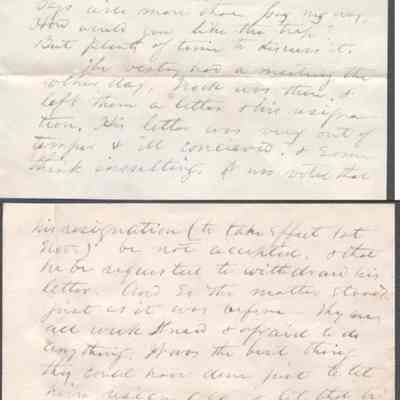 more than pay my way.
How would you like the trip?
But plenty of time to discuss it.
The vestry had a meeting the
other day, was there &
left them a letter & his resigna
tion. His letter was very out of
temper & ill concieved. & some
think insulting. It was voted that
his resignation (to take effect 1st
Nov.) be not accepted, & that
he be requested to withdraw his
letter. And so the matter stands
just as it was before. They are
all weak kneed & afraid to do
anything. It was the best thing
they could have done just to let